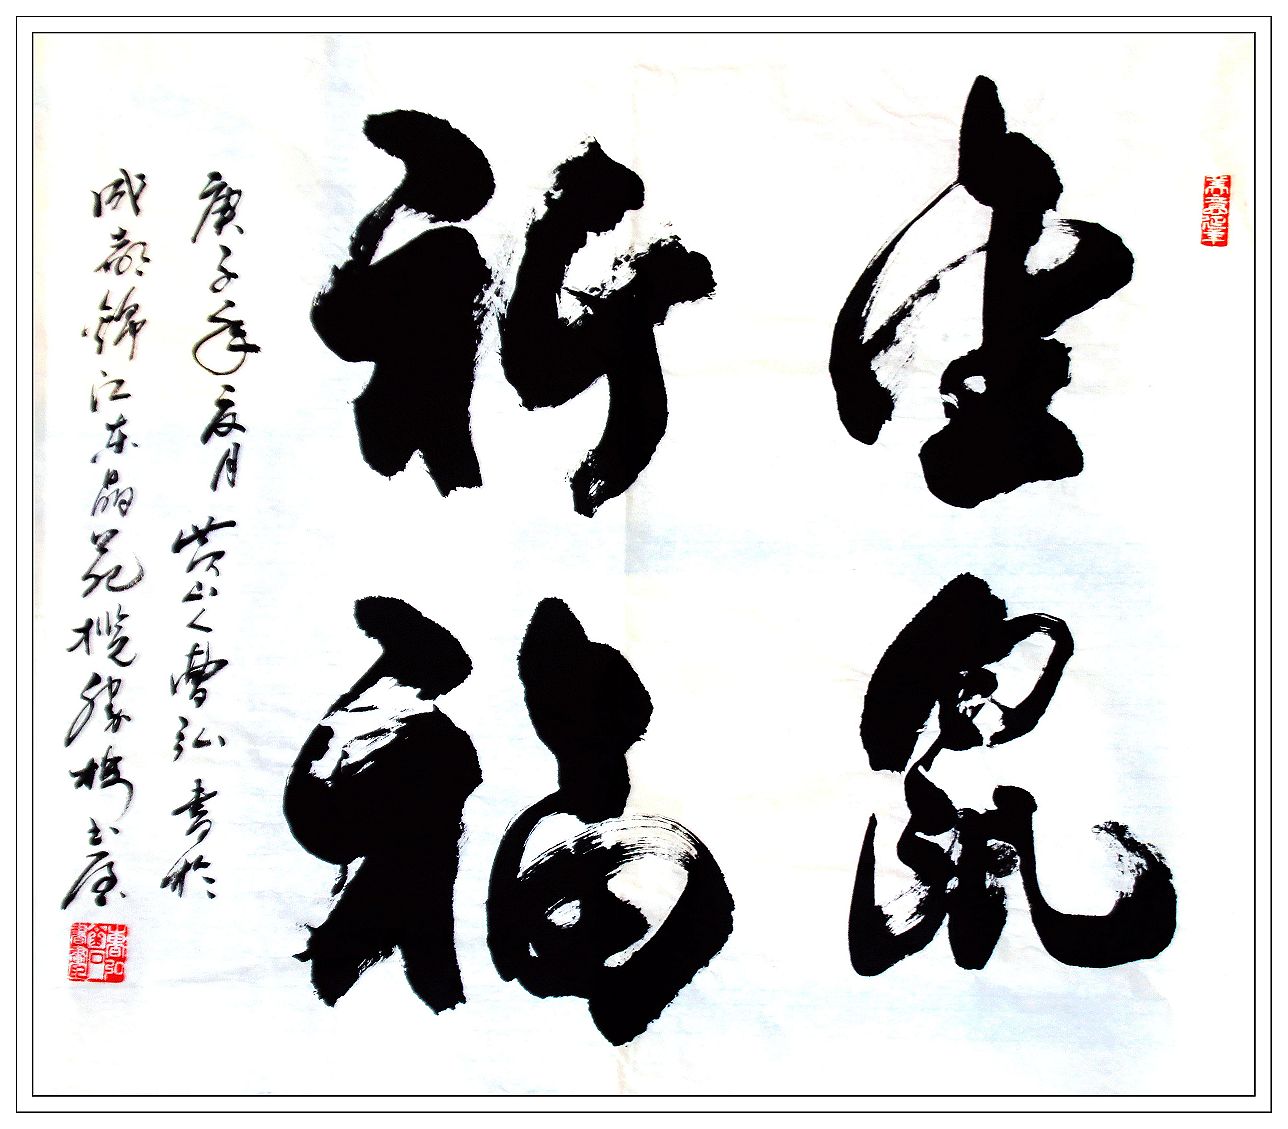 金鼠
祈福
庚子年辰月 黄山人曹弘书於
成都锦江东晶苑揽胜楼书屋